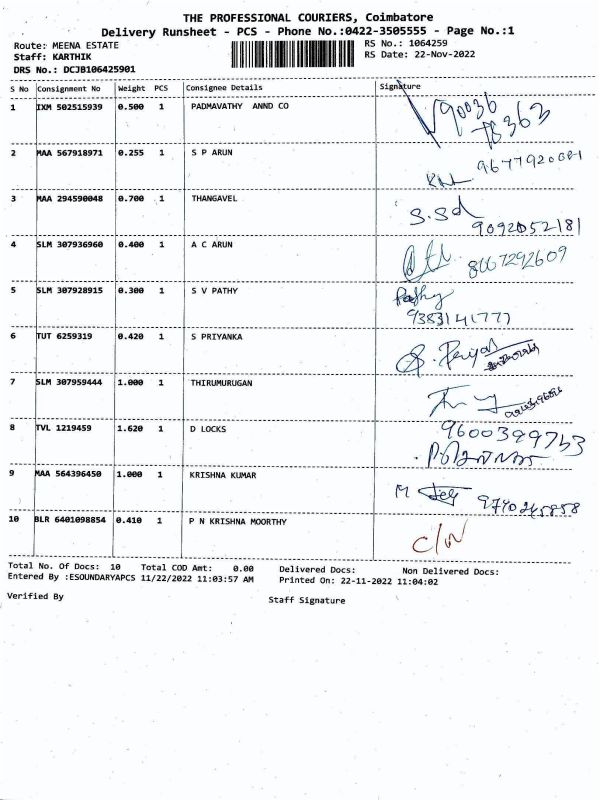 THE PROFESSIONAL COURIERS, Coimbatore
Delivery Runsheet - PCS - Phone No.:0422-3505555 - Page No.:1
Route: MEENA ESTATE RS No.: 1064259
Staff: KARTHIK RS Date: 22-Nov-2022
DRS No.: DCJB106425901
S No Consignment No Weight PCS Consignee Details Signature
1 IXM 502515939 0.500 1 PADMAVATHY ANND CO 90036
78363
2 MAA 567918971 0.255 1 S P ARUN
3 MAA 294590048 0.700 1 THANGAVEL S.Sd
9092052181
4 SLM 307936960 0.400 1 A C ARUN
5 SLM 307928915 0.300 1 S V PATHY Pathy
9383141777
6 TUT 6259319 0.420 1 S PRIYANKA
7 SLM 307959444 1.000 1 THIRUMURUGAN
8 TVL 1219459 1.620 1 D LOCKS 9600399753
9 MAA 564396450 1.000 1 KRISHNA KUMAR M
10 BLR 6401098854 0.410 1 P N KRISHNA MOORTHY C/W
Total No. Of Docs: 10 Total COD Amt: 0.00 Delivered Docs: Non Delivered Docs:
Entered By :ESOUNDARYAPCS 11/22/2022 11:03:57 AM Printed On: 22-11-2022 11:04:02
Verified By Staff Signature